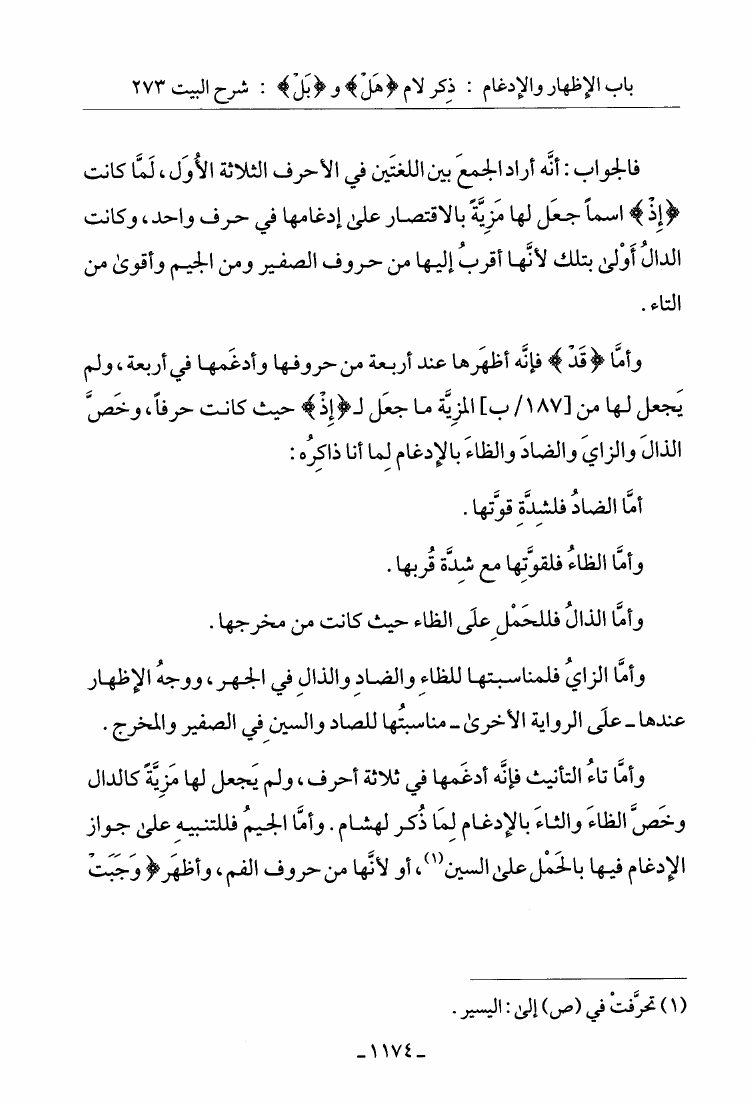 باب الإظهار والإدغام : ذِكر لام ﴿هَلْ﴾ و﴿بَلْ﴾ : شرح البيت ٢٧٣
فالجواب : أنَّه أراد الجمعَ بين اللغتَين في الأحرف الثلاثة الأُوَل، لَمَّا كانت
﴿إِذْ﴾ اسماً جعَل لها مَزِيَّةً بالاقتصار علىٰ إدغامها في حرف واحد، وكانت
الدالُ أَوْلىٰ بتلك لأنَّها أقربُ إليها من حروف الصفير ومن الجيم وأقوىٰ من
التاء .
وأمَّا ﴿قَدْ﴾ فإنَّه أظهَرها عند أربعة من حروفها وأدغَمها في أربعة، ولم
يَجعل لها من [١٨٧/ ب] المزِيَّة ما جعَل لـ﴿إِذْ﴾ حيث كانت حرفاً، وخَصَّ
الذالَ والزايَ والضادَ والظاءَ بالإدغام لِما أنا ذاكِرُه :
أمَّا الضادُ فلشِدَّةِ قوَّتِها .
وأمَّا الظاءُ فلقوَّتِها مع شِدَّة قُربها .
وأمَّا الذالُ فللحَمْلِ علَى الظاء حيث كانت من مخرجها .
وأمَّا الزايُ فلمناسبتها للظاءِ والضادِ والذالِ في الجهر، ووجهُ الإظهار
عندها ـ علَى الرواية الأخرىٰ ـ مناسبتُها للصاد والسينِ في الصفير والمخرج .
وأمَّا تاءُ التأنيث فإنَّه أدغَمها في ثلاثة أحرف، ولم يَجعل لها مَزِيَّةً كالدال
وخَصَّ الظاءَ والثاءَ بالإدغام لِمَا ذُكر لهشام . وأمَّا الجيمُ فللتنبيهِ علىٰ جواز
الإدغام فيها بالحَمْل علىٰ السين(١)، أو لأنَّها من حروف الفم، وأظهَر ﴿وَجَبَتْ
(١) تحرَّفتْ في (ص) إلىٰ : اليسير .
ـ ١١٧٤ ـ